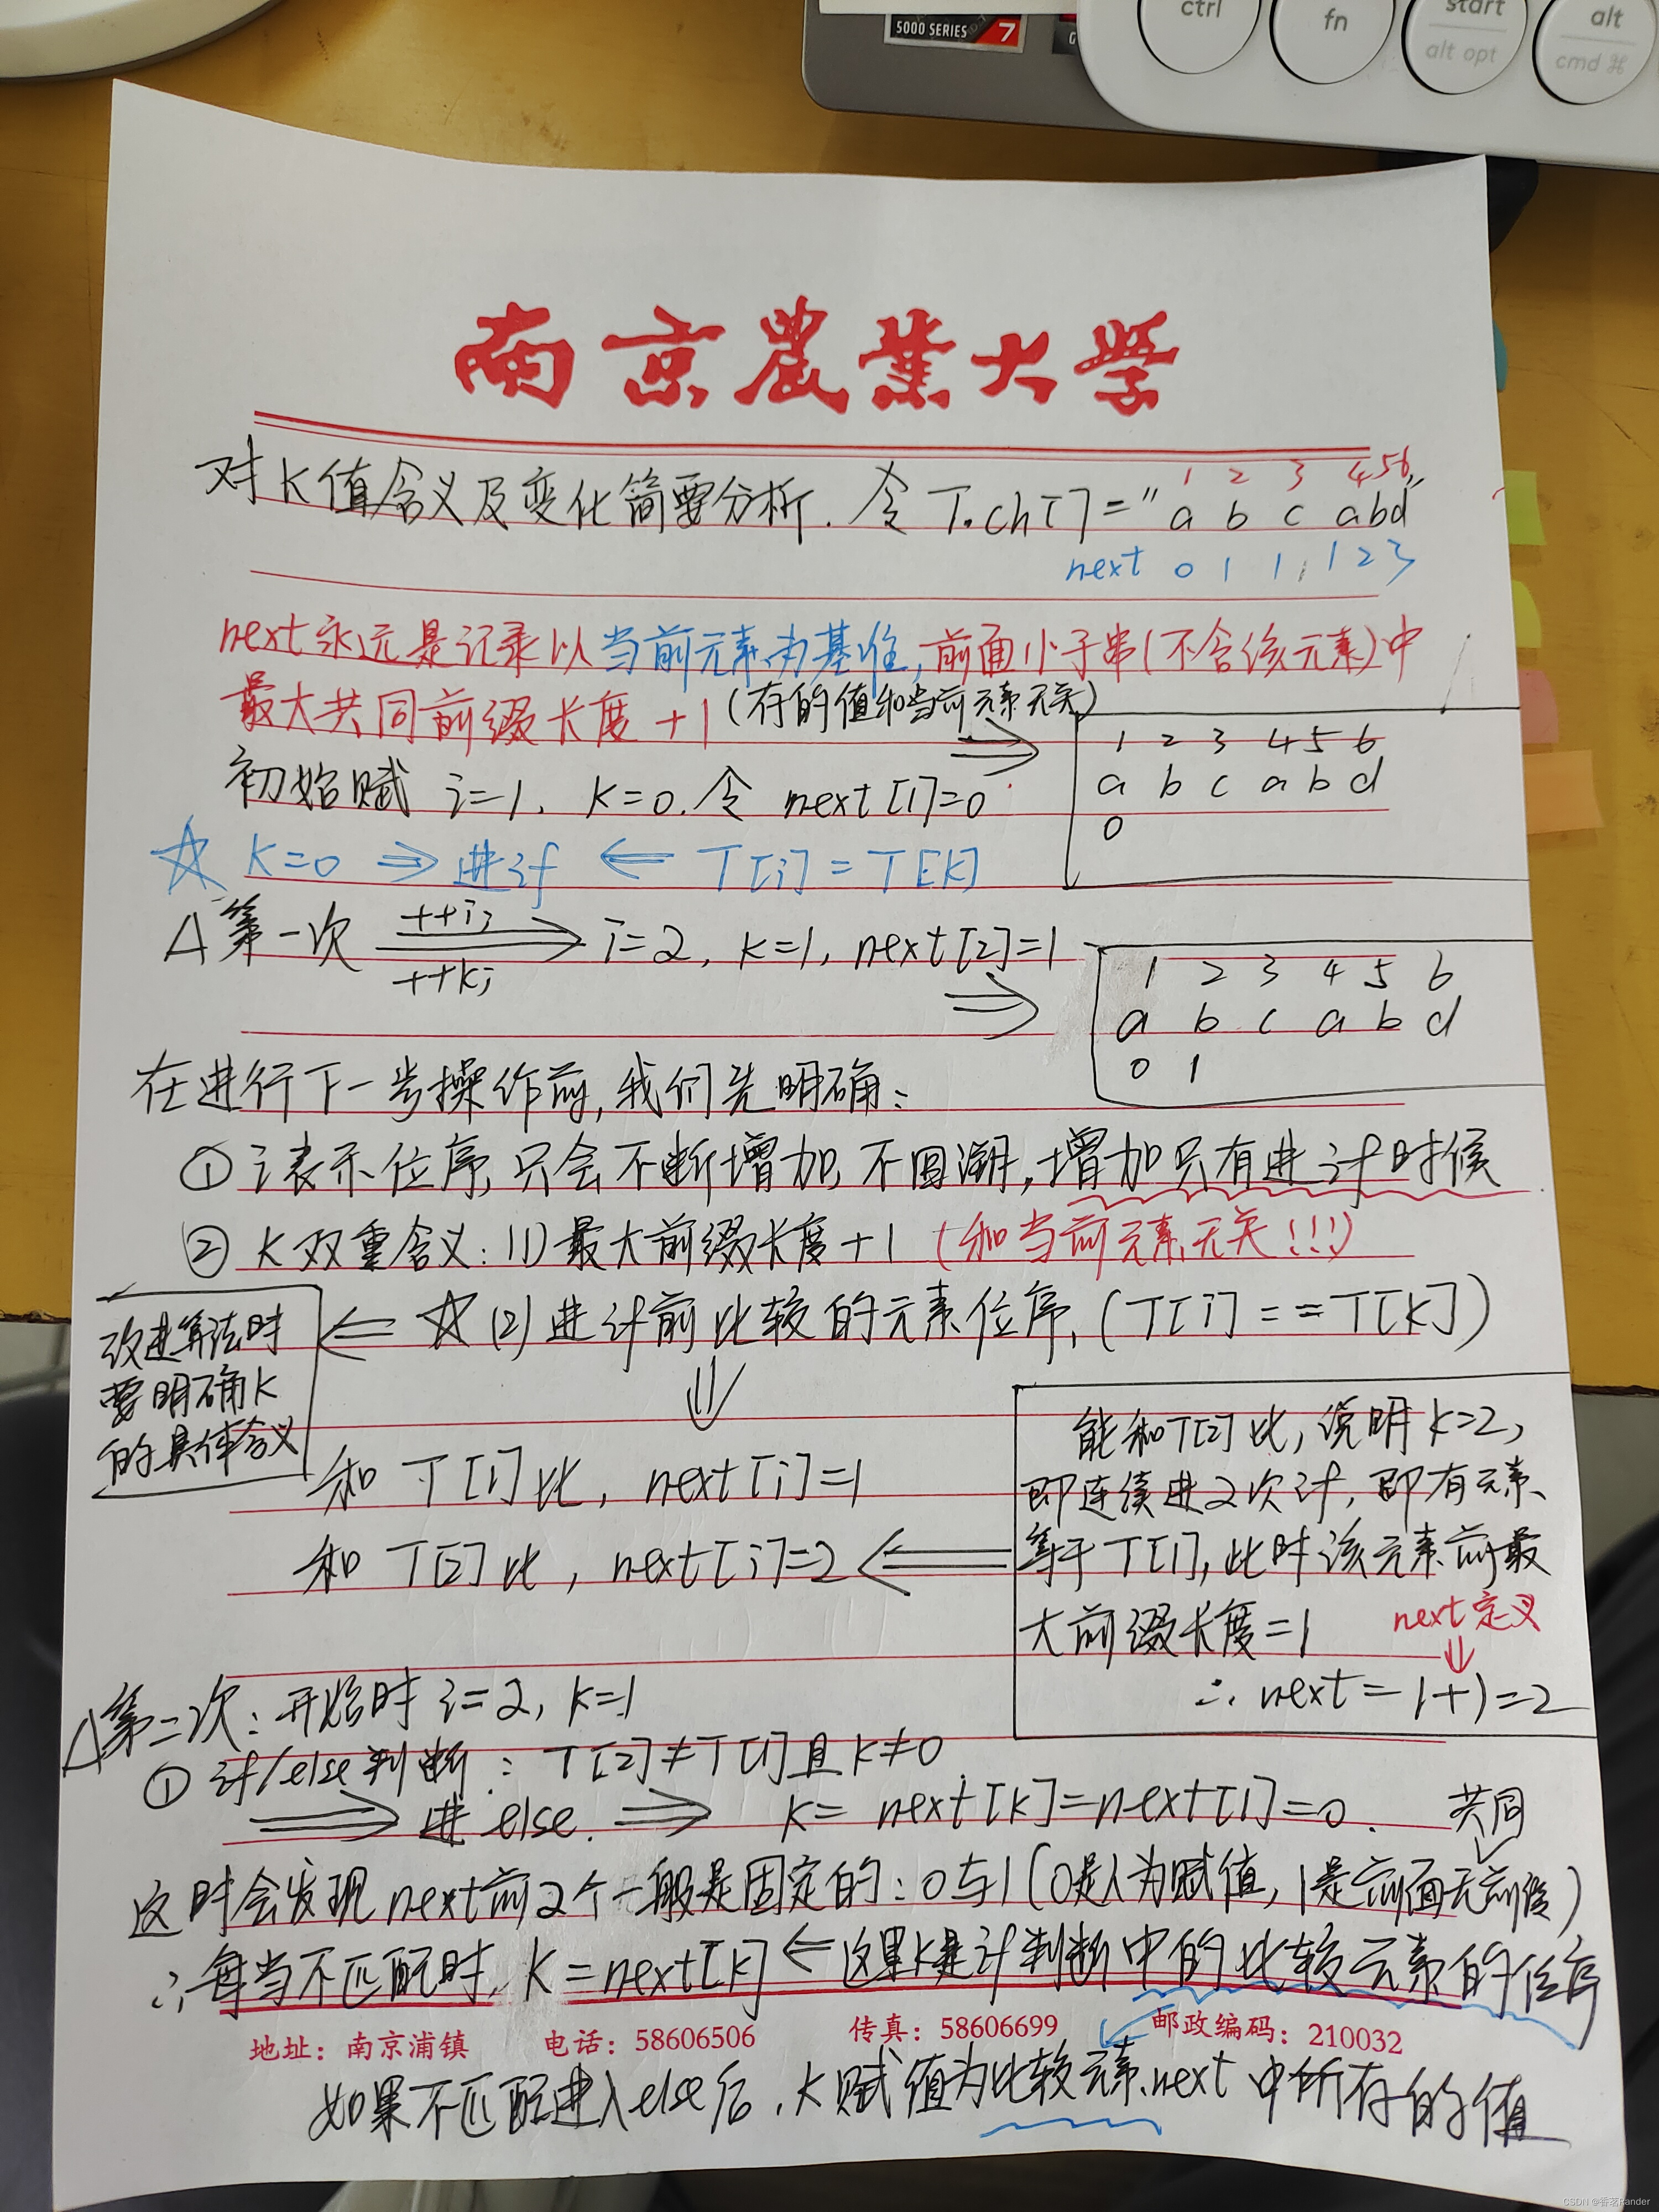 ctrl
fn
start
alt opt
alt
cmd ⌘
5000 SERIES 7
南京農業大學
1 2 3 4 5 6
对K值含义及变化简要分析. 令 T.ch[]="a b c abd"
next 0 1 1 1 2 3
next永远是记录以当前元素为基准,前面小子串(不含该元素)中
最大共同前缀长度+1(存的值和当前元素无关)
初始赋 i=1, K=0.令 next[1]=0
1 2 3 4 5 6
a b c a b d
0
☆ K=0 ⇒ 进if ⇐ T[i]=T[K]
△第一次 ++i; ++k; i=2, k=1, next[2]=1
1 2 3 4 5 6
a b c a b d
0 1
在进行下一步操作前,我们先明确:
① i表示位序,只会不断增加,不回溯,增加只有进if时候
② K双重含义:(1)最大前缀长度+1 (和当前元素无关!!!)
⇐ ☆(2)进if前比较的元素位序,(T[i]==T[K])
改进算法时
要明确K
的具体含义
⇓
和 T[1]比, next[i]=1
和 T[2]比, next[i]=2 ⇐
能和T[2]比,说明k=2,
即连续进2次if,即有元素
等于T[1],此时该元素前最
大前缀长度=1 next定义
⇓
∴ next=1+1=2
△第二次:开始时i=2, k=1
① if/else判断: T[2]≠T[1]且k≠0
⇒ 进else. ⇒ k= next[k]=next[1]=0.
共同
这时会发现next前2个一般是固定的:0与1(0是人为赋值,1是前面无前缀)
∴每当不匹配时,K=next[k] ← 这里k是if判断中的比较元素的位序
地址：南京浦镇 电话：58606506 传真：58606699 邮政编码：210032
如果不匹配进入else后,K赋值为比较元素next中所存的值
CSDN @香茗Rander